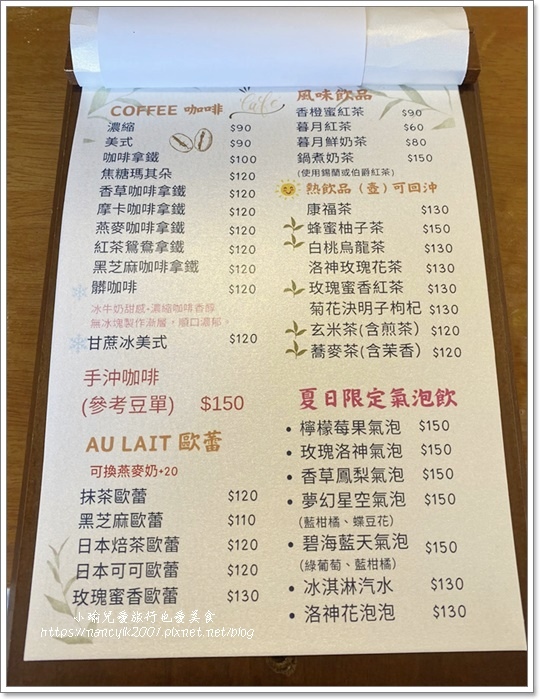 COFFEE 咖啡 Cafe
濃縮 $90
美式 $90
咖啡拿鐵 $100
焦糖瑪其朵 $120
香草咖啡拿鐵 $120
摩卡咖啡拿鐵 $120
燕麥咖啡拿鐵 $120
紅茶鴛鴦拿鐵 $120
黑芝麻咖啡拿鐵 $120
髒咖啡 $120
冰牛奶甜感+濃縮咖啡香醇
無冰塊製作漸層，順口濃郁。
甘蔗冰美式 $120
手沖咖啡
(參考豆單) $150
AU LAIT 歐蕾
可換燕麥奶+20
抹茶歐蕾 $120
黑芝麻歐蕾 $110
日本焙茶歐蕾 $120
日本可可歐蕾 $120
玫瑰蜜香歐蕾 $130
風味飲品
香橙蜜紅茶 $90
暮月紅茶 $60
暮月鮮奶茶 $80
鍋煮奶茶 $150
(使用錫蘭或伯爵紅茶)
熱飲品（壺）可回沖
康福茶 $130
蜂蜜柚子茶 $150
白桃烏龍茶 $130
洛神玫瑰花茶 $130
玫瑰蜜香紅茶 $130
菊花決明子枸杞 $130
玄米茶(含煎茶) $120
蕎麥茶(含茉香) $120
夏日限定氣泡飲
• 檸檬莓果氣泡 $150
• 玫瑰洛神氣泡 $150
• 香草鳳梨氣泡 $150
• 夢幻星空氣泡 $150
(藍柑橘、蝶豆花)
• 碧海藍天氣泡 $150
(綠葡萄、藍柑橘)
• 冰淇淋汽水 $130
• 洛神花泡泡 $130
小瑜兒愛旅行也愛美食
https://nancylk2001.pixnet.net/blog